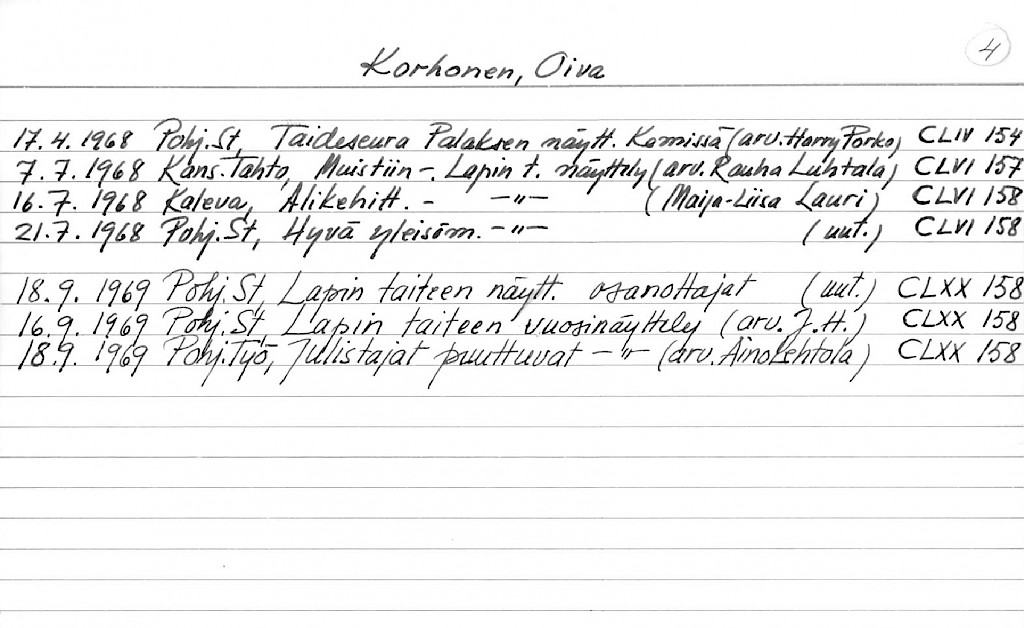 4
Korhonen, Oiva
17.4.1968 Pohj.St, Taideseura Palaksen näytt. Kemissä (arv. Harry Porko) CLIV 154
7.7.1968 Kans.Tahto, Muistiin -. Lapin t. näyttely (arv. Rauha Luhtala) CLVI 157
16.7.1968 Kaleva, Alikehitt. - -"- (Maija-Liisa Lauri) CLVI 158
21.7.1968 Pohj.St, Hyvä yleisöm. -"- (uut.) CLVI 158
18.9.1969 Pohj.St, Lapin taiteen näytt. osanottajat (uut.) CLXX 158
16.9.1969 Pohj.St, Lapin taiteen vuosinäyttely (arv. J.H.) CLXX 158
18.9.1969 Pohj.Työ, Julistajat puuttuvat -"- (arv. Aino Lehtola) CLXX 158